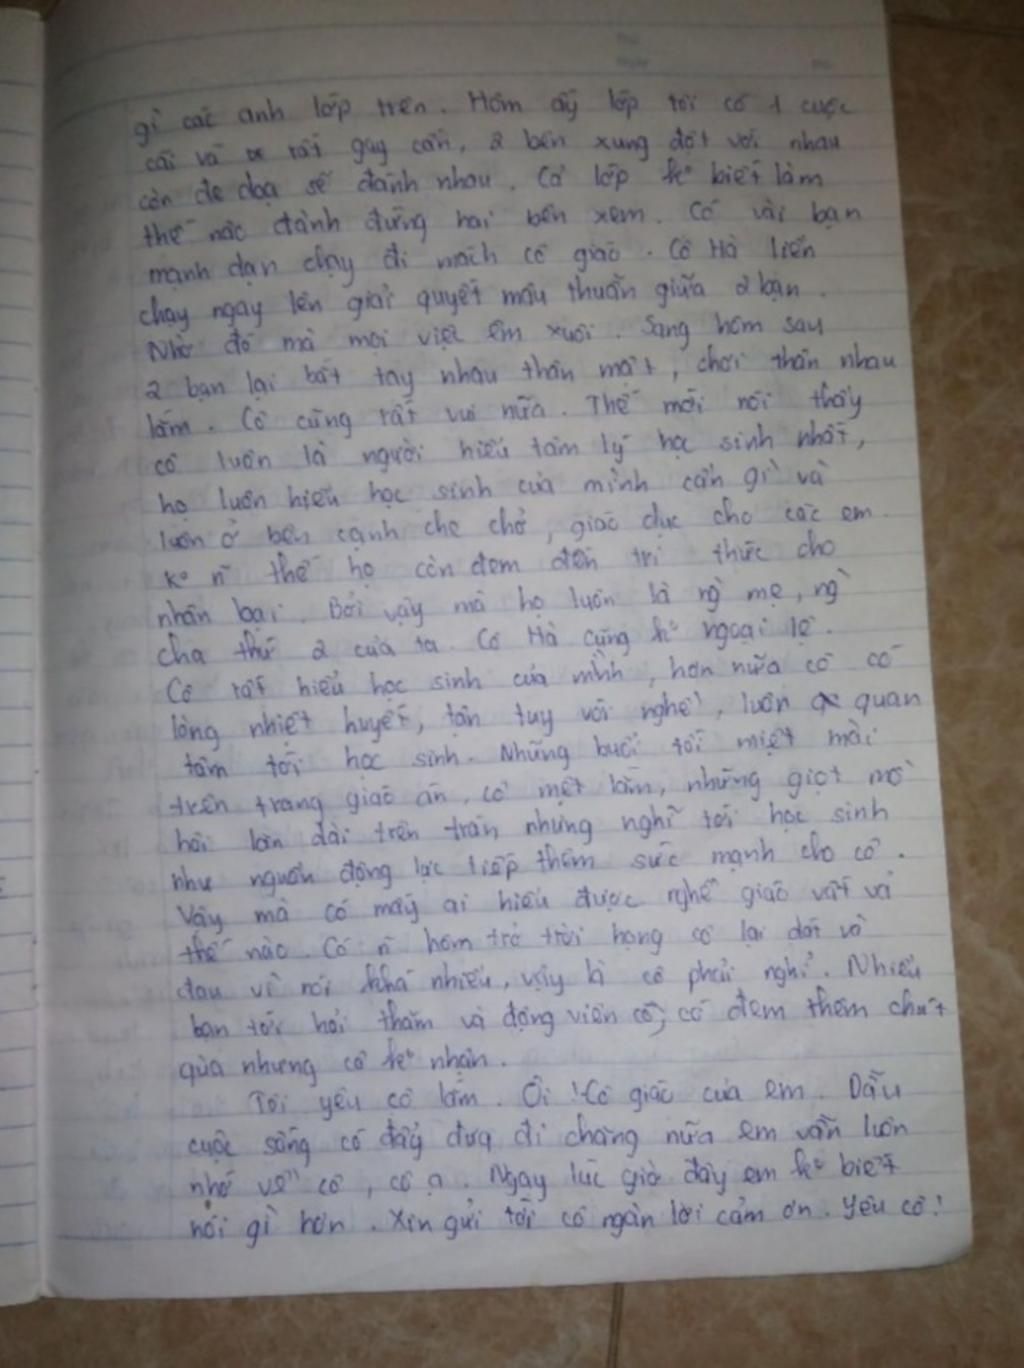 gì các anh lớp trên. Hôm ấy lớp tôi có 1 cuộc
cãi vã rất gay cấn, 2 bên xung đột với nhau
còn đe dọa sẽ đánh nhau. Cả lớp ko biết làm
thế nào đành đứng hai bên xem. Có vài bạn
mạnh dạn chạy đi mách cô giáo. Cô Hà liền
chạy ngay lên giải quyết mâu thuẫn giữa 2 bạn.
Nhờ đó mà mọi việc êm xuôi. Sang hôm sau
2 bạn lại bắt tay nhau thân mật, chơi thân nhau
lắm. Cô cũng rất vui nữa. Thế mới nói thầy
cô luôn là người hiểu tâm lý học sinh nhất,
họ luôn hiểu học sinh của mình cần gì và
luôn ở bên cạnh che chở, giáo dục cho các em.
Ko n~ thế họ còn đem đến tri thức cho
nhân loại. Bởi vậy mà họ luôn là ng` mẹ, ng`
cha thứ 2 của ta. Cô Hà cũng ko ngoại lệ.
Cô rất hiểu học sinh của mình, hơn nữa cô có
lòng nhiệt huyết, tận tụy với nghề, luôn quan
tâm tới học sinh. Những buổi tối miệt mài
trên trang giáo án, cô mệt lắm, những giọt mồ
hôi lăn dài trên trán nhưng nghĩ tới học sinh
như nguồn động lực tiếp thêm sức mạnh cho cô.
Vậy mà có mấy ai hiểu được nghề giáo vất vả
thế nào. Có n~ hôm trở trời họng cô lại rát và
đau vì nói khá nhiều, vậy là cô phải nghỉ. Nhiều
bạn tới hỏi thăm và động viên cô, có đem thêm chút
quà nhưng cô ko nhận.
Tôi yêu cô lắm. Ôi ! Cô giáo của em. Dẫu
cuộc sống có đẩy đưa đi chăng nữa em vẫn luôn
nhớ về cô, cô ạ. Ngay lúc giờ đây em ko biết
nói gì hơn. Xin gửi tới cô ngàn lời cảm ơn. Yêu cô!